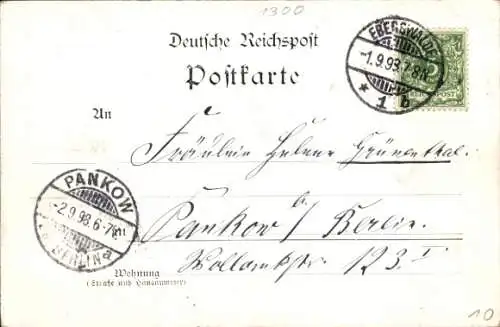 1300
Deutsche Reichspost
Postkarte
EBERSWALDE
-1.9.98.7-8N.
* 1 b
An
Fräulein Helene Grünenthal.
PANKOW
-2.9.98.6-7V.
BERLIN
in
Pankow b/ Berlin.
Wollankstr. 123. I
Wohnung
(Straße und Hausnummer)
10